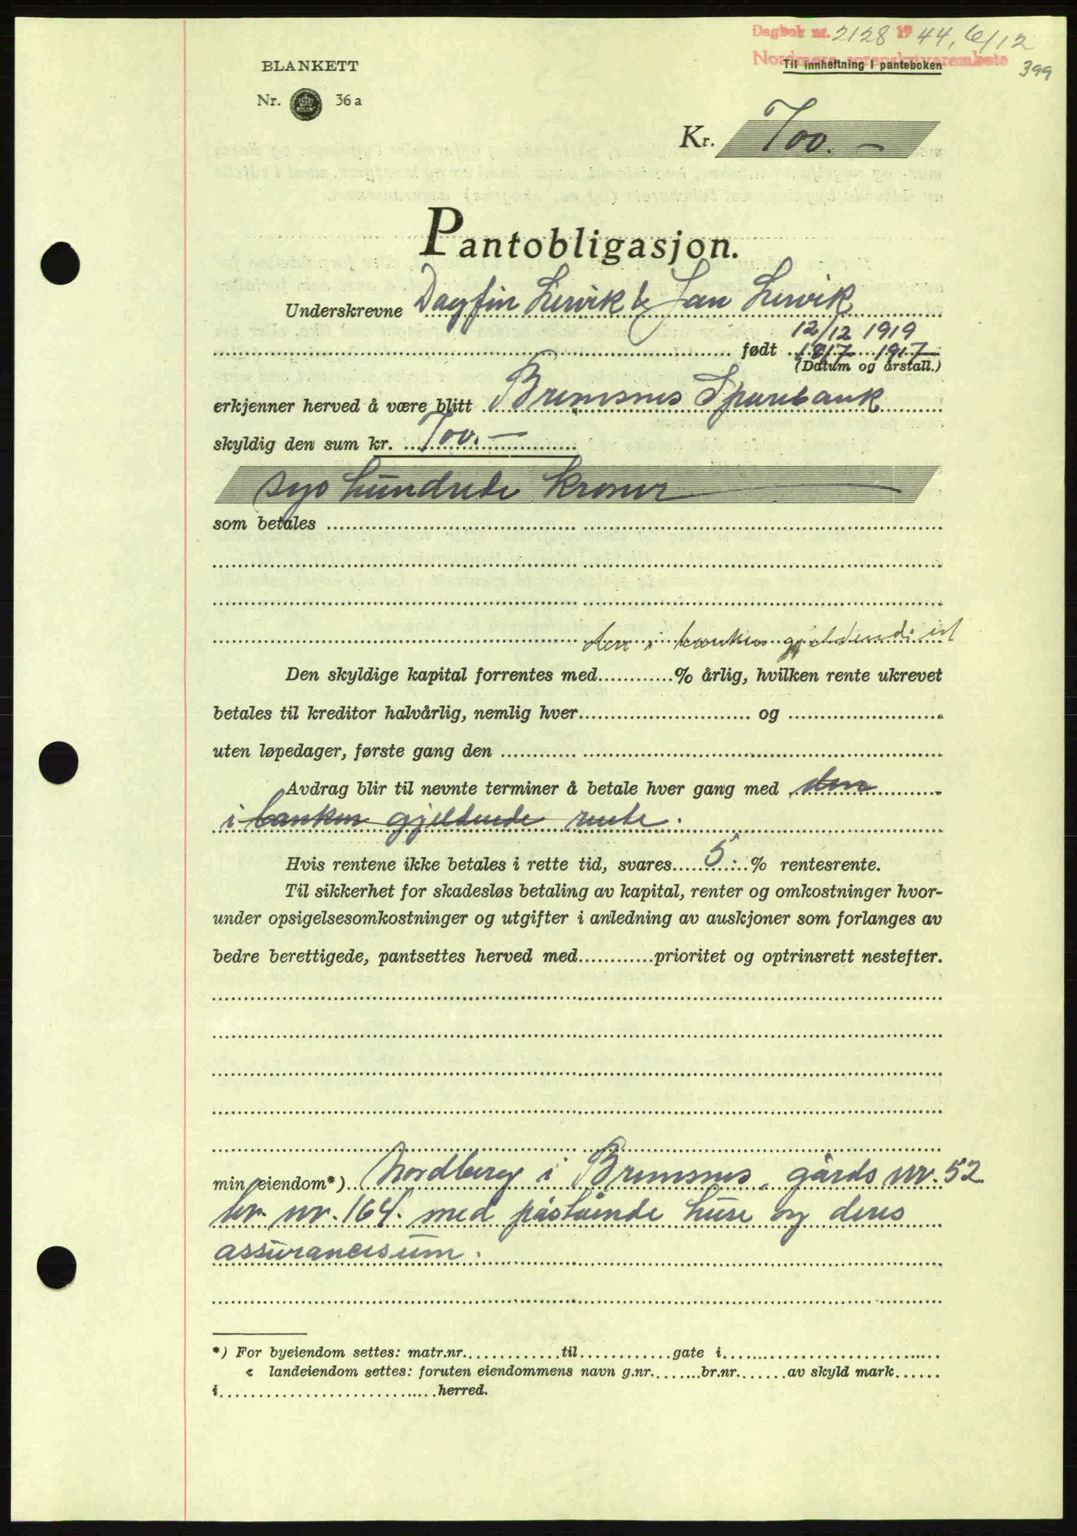 Dagbok nr. 2128 19 44, 6/12
Nordmøre sorenskriverembete
Til innheftning i panteboken
399
BLANKETT
Nr. 36 a
Kr. 700.-
Pantobligasjon.
Underskrevne Dagfin Lervik & Jan Lervik
12/12 1919
født 18/7 1917
(Datum og årstall.)
erkjenner herved å være blitt Bremsnes Sparebank
skyldig den sum kr. 700.-
syv hundrede kroner
som betales
den i banken gjeldende
Den skyldige kapital forrentes med............% årlig, hvilken rente ukrevet
betales til kreditor halvårlig, nemlig hver............ og ............
uten løpedager, første gang den ............
Avdrag blir til nevnte terminer å betale hver gang med den
i banken gjeldende rente.
Hvis rentene ikke betales i rette tid, svares 5 % rentesrente.
Til sikkerhet for skadesløs betaling av kapital, renter og omkostninger hvor-
under opsigelsesomkostninger og utgifter i anledning av auskjoner som forlanges av
bedre berettigede, pantsettes herved med............prioritet og optrinsrett nestefter.
min eiendom*) Nordberg i Bremsnes, gårds nr. 52
br. nr. 164. med påstående huse og deres
assurancesum.
*) For byeiendom settes: matr.nr.............til............gate i............
« landeiendom settes: foruten eiendommens navn g.nr........br.nr.......av skyld mark......
i............herred.